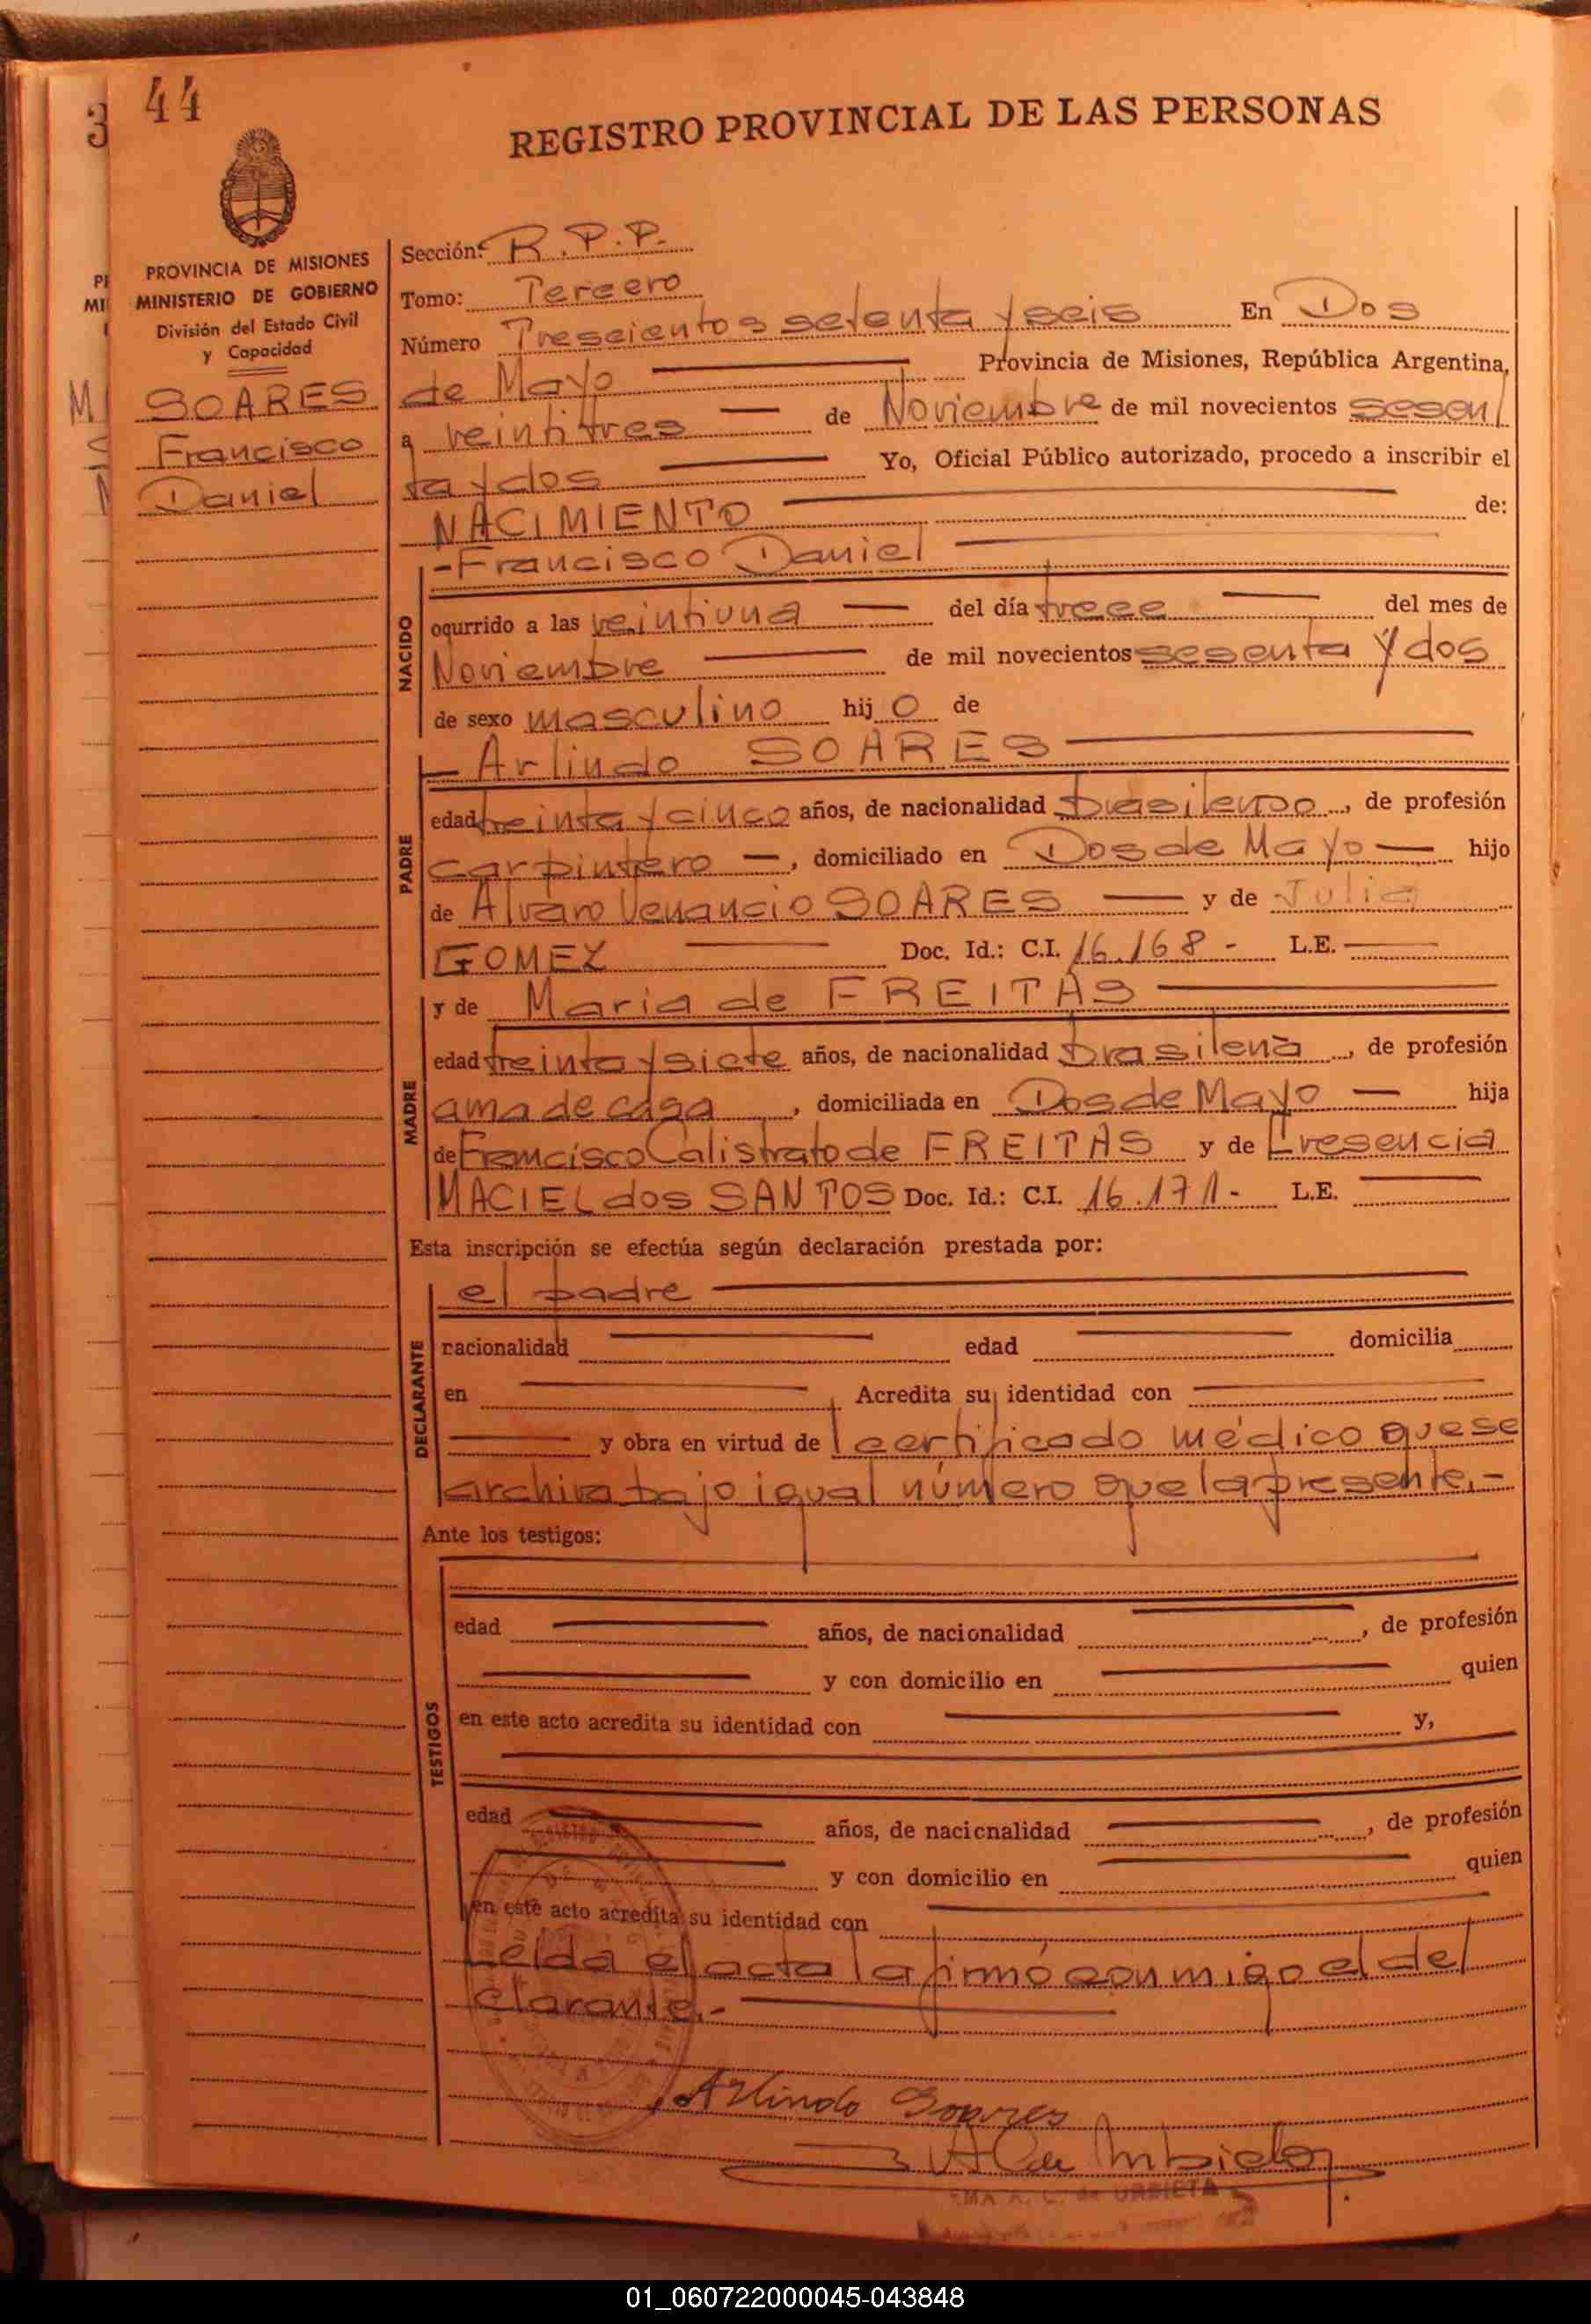 44
REGISTRO PROVINCIAL DE LAS PERSONAS
PROVINCIA DE MISIONES
MINISTERIO DE GOBIERNO
División del Estado Civil
y Capacidad
SOARES
Francisco
Daniel
Sección: R.P.P.
Tomo: Tercero
Número Trescientos setenta y seis En Dos
de Mayo Provincia de Misiones, República Argentina,
a veintitres de Noviembre de mil novecientos sesen
ta y dos Yo, Oficial Público autorizado, procedo a inscribir el
NACIMIENTO de:
-Francisco Daniel
NACIDO
ocurrido a las veintiuna del día trece del mes de
Noviembre de mil novecientos sesenta y dos
de sexo masculino hijo de
Arlindo SOARES
PADRE
edad treinta y cinco años, de nacionalidad brasilerso, de profesión
carpintero —, domiciliado en Dos de Mayo — hijo
de Alvaro Venancio SOARES y de Julia
GOMEZ Doc. Id.: C.I. 16.168 - L.E.
y de Maria de FREITAS
MADRE
edad treinta y siete años, de nacionalidad brasilena, de profesión
ama de casa, domiciliada en Dos de Mayo — hija
de Francisco Calistrato de FREITAS y de
MACIEL dos SANTOS Doc. Id.: C.I. 16.171 - L.E.
Esta inscripción se efectúa según declaración prestada por:
el padre
DECLARANTE
nacionalidad edad domicilia
en Acredita su identidad con
y obra en virtud de certificado médico que se
archiva bajo igual número que la presente.-
Ante los testigos:
TESTIGOS
edad años, de nacionalidad , de profesión
y con domicilio en quien
en este acto acredita su identidad con y,
edad años, de nacionalidad , de profesión
y con domicilio en quien
en este acto acredita su identidad con
Leida el acta la firmó conmigo el de
clarante.-
Arlindo Soares
A. C. de URBIETA
01_060722000045-043848